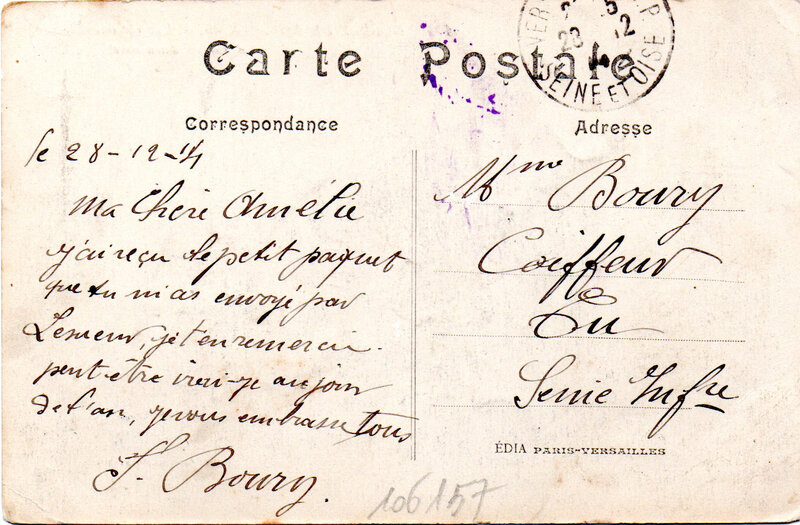 Carte Postale
SEINE ET OISE
Correspondance
le 28-12-14
Ma Chère Amélie
j'ai reçu le petit paquet
que tu m'as envoyé par
Lesueur, je t'en remercie.
peut-être irai-je au jour
de l'an, je vous embrasse tous
F. Boury.
Adresse
Mme Boury
Coiffeur
Eu
Seine Infre
ÉDIA PARIS-VERSAILLES
106157